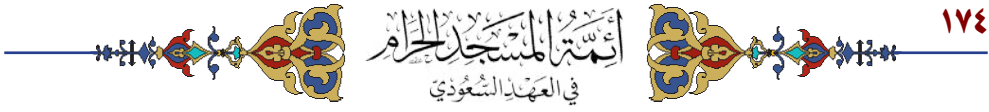 ١٧٤
أَئِمَّةُ المَسْجِدِ الحَرَامِ
في العَهْدِ السُّعُودِيّ